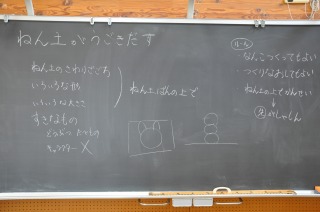 ねん土がうごきだす
ねん土のさわりごこち
いろいろなかたち
いろいろな大きさ
すきなもの
どうぶつ たてもの
キャラクター X
ねん土ばんの上で
ルール
なんこつくってもよい
つくりなおしてもよい
ねん土の上でかんせい
↓
しゃしん